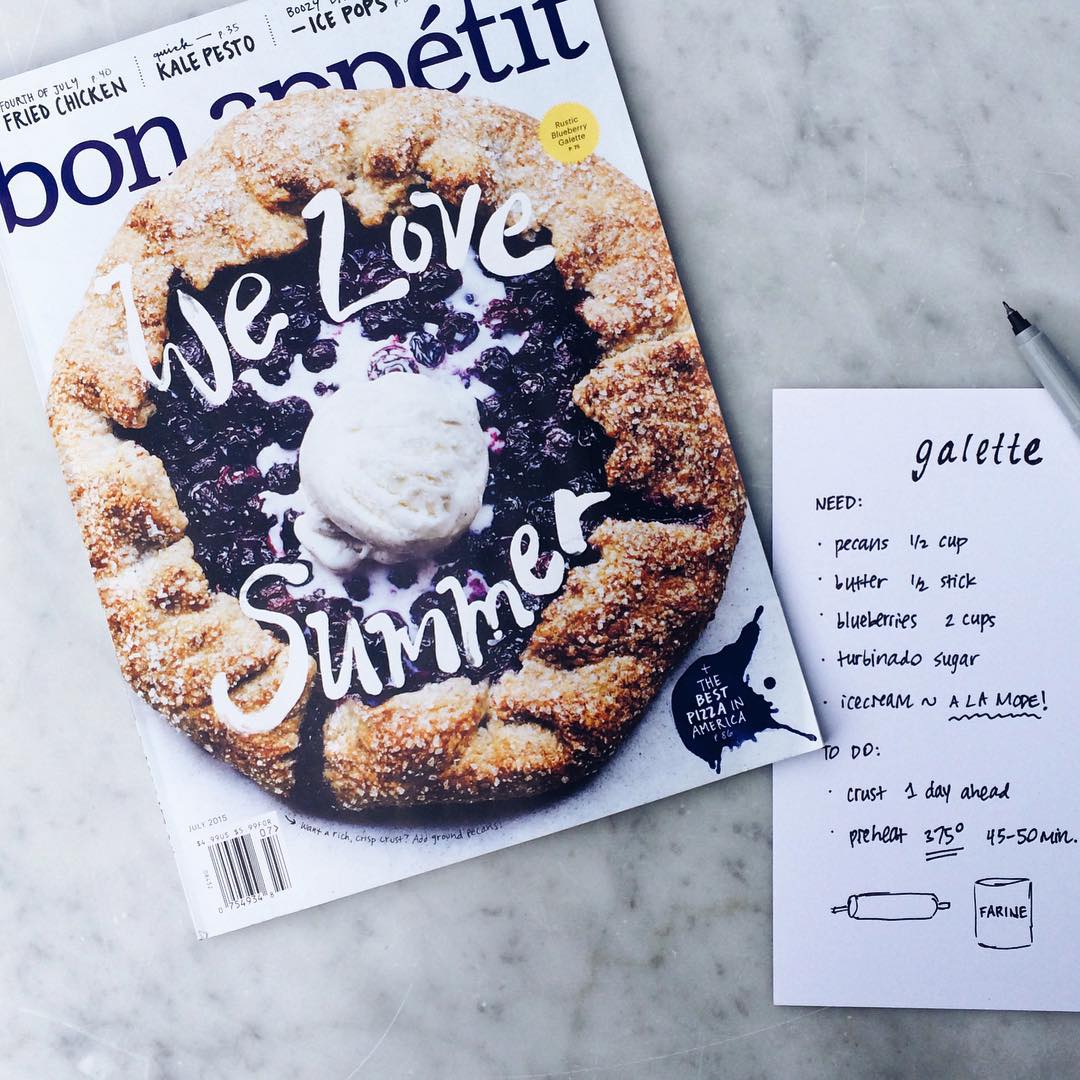 FOURTH OF JULY P 40
FRIED CHICKEN
quick — P.35
KALE PESTO
BOOZY
—ICE POPS
bon appétit
Rustic
Blueberry
Galette
P 76
We Love
Summer
+
THE
BEST
PIZZA IN
AMERICA
P 86
JULY 2015
$4.99US $5.99FOR
07>
0 754934 8
Want a rich, crisp crust? Add ground pecans!
galette
NEED:
· pecans 1/2 cup
· butter 1/2 stick
· blueberries 2 cups
· turbinado sugar
· icecream ~ A LA MODE!
TO DO:
· crust 1 day ahead
· preheat 375° 45-50 min.
FARINE